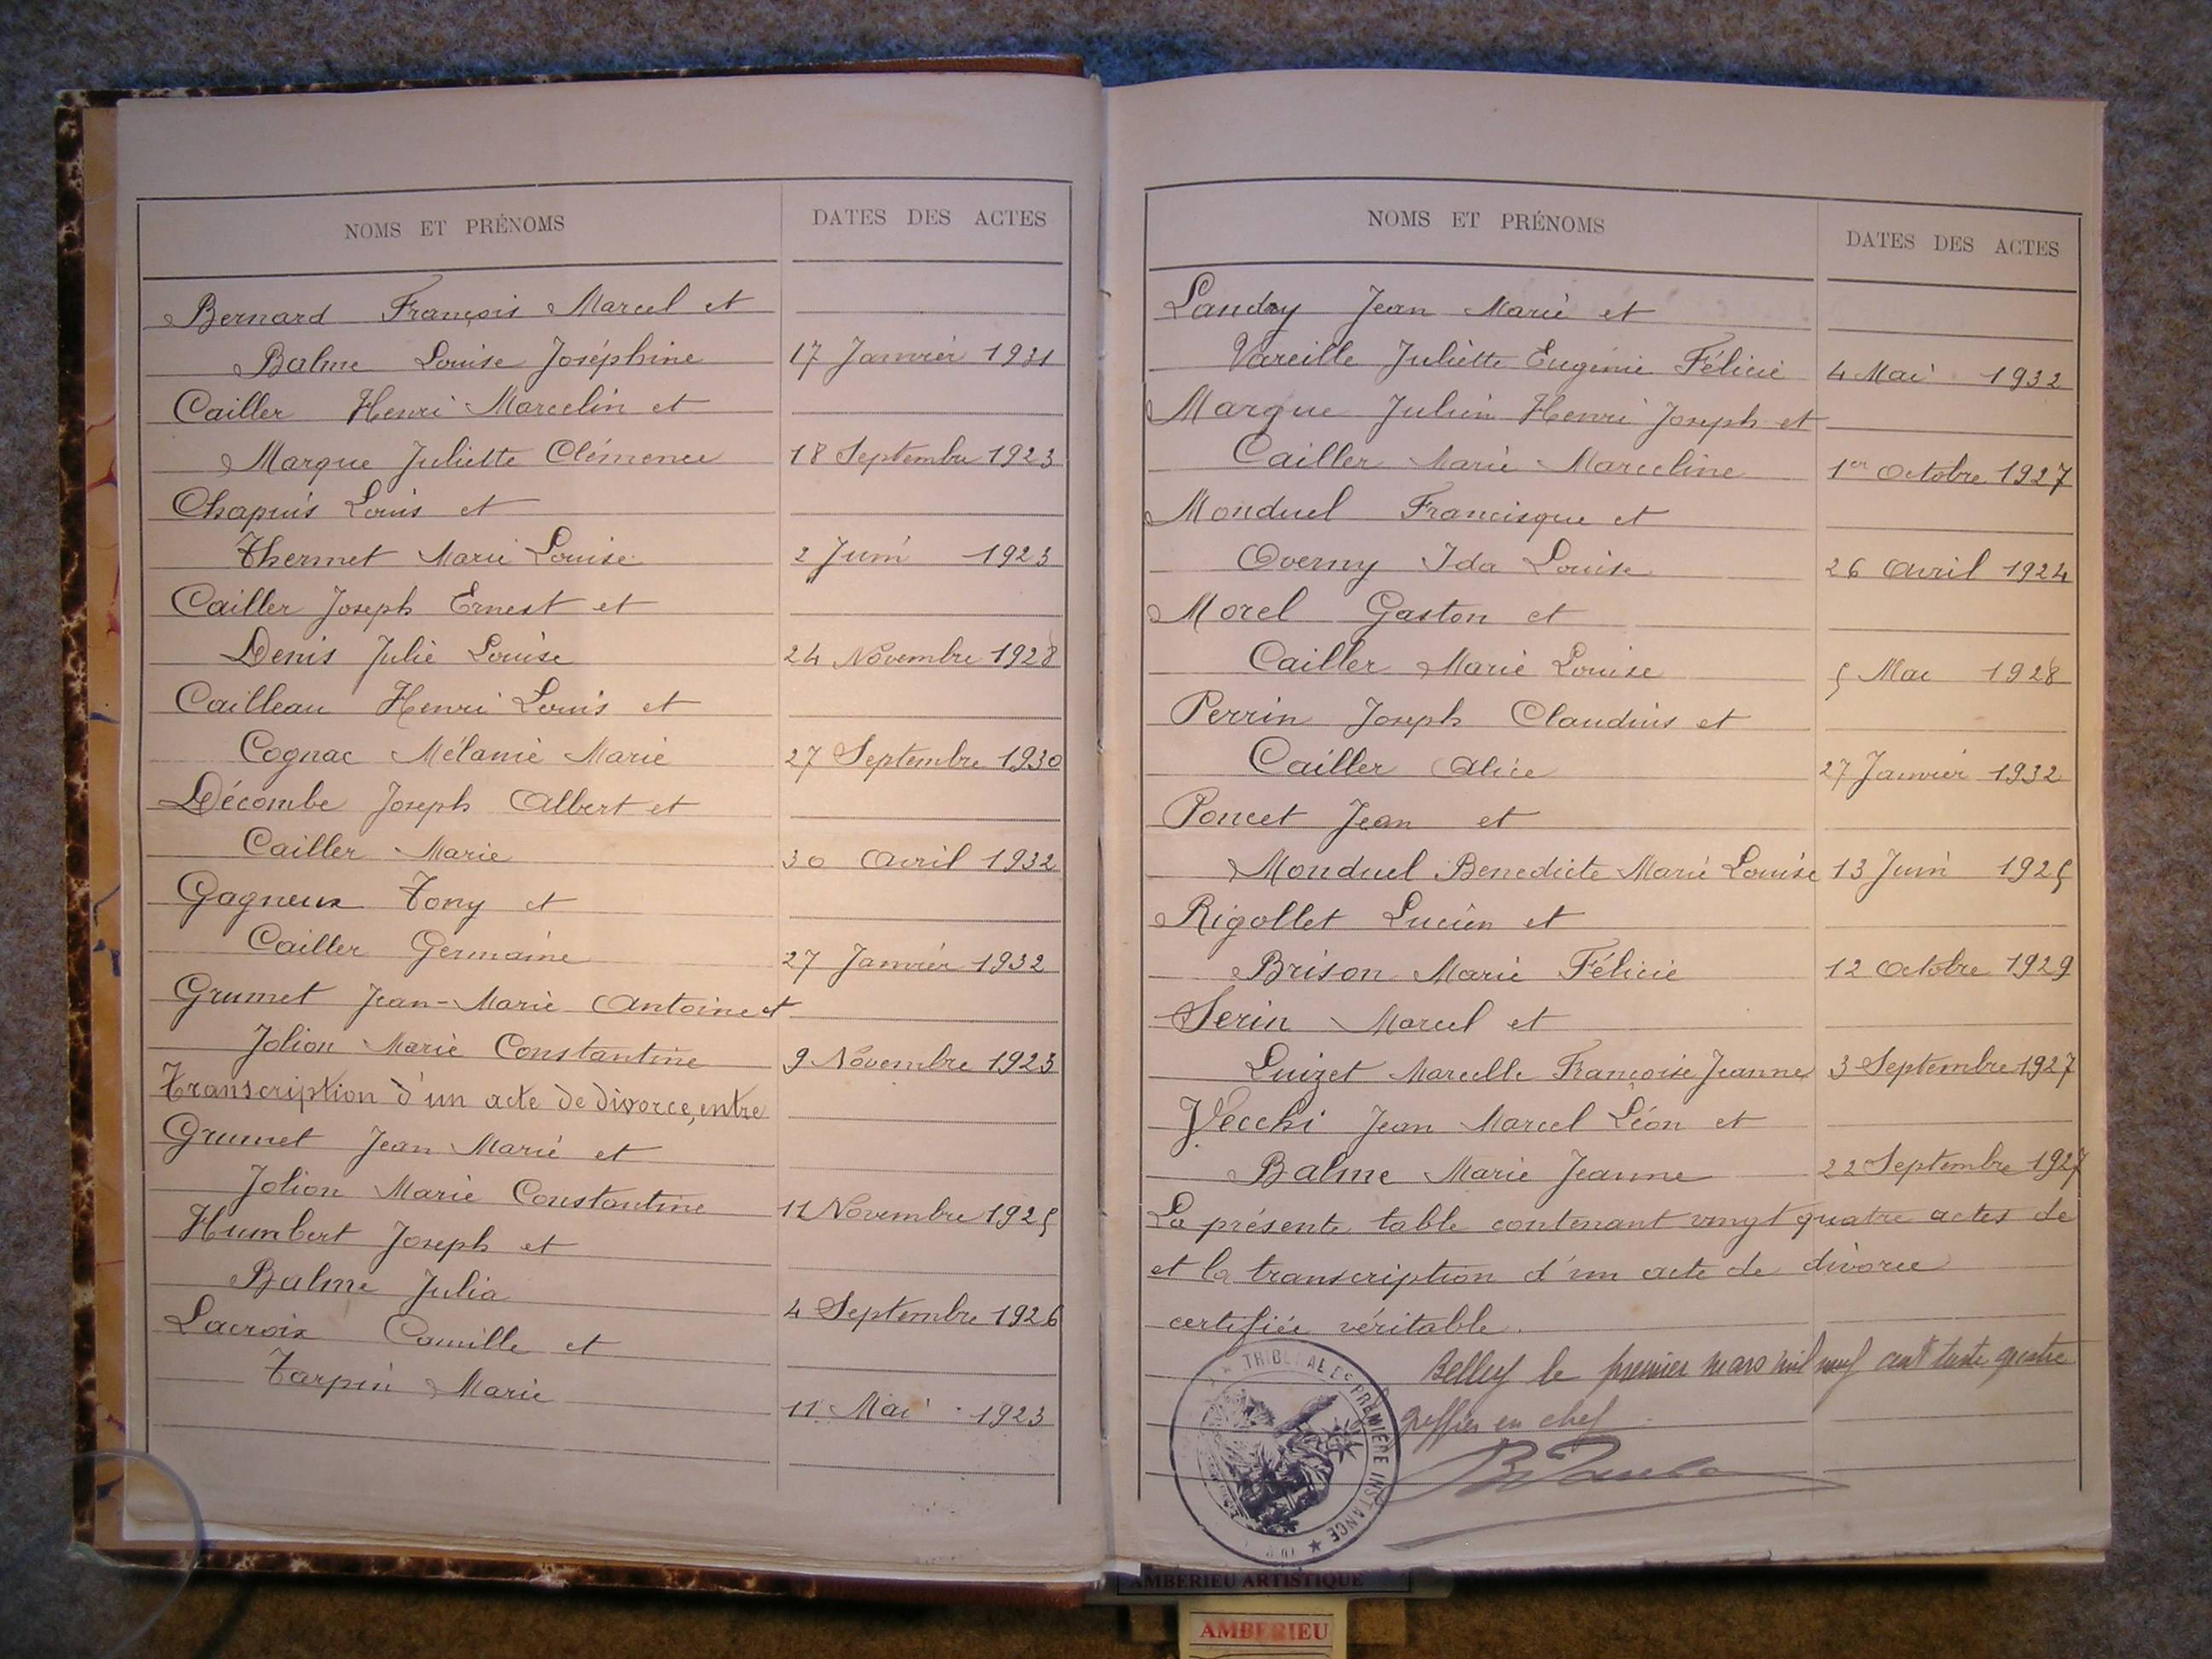 NOMS ET PRÉNOMS DATES DES ACTES
Bernard François Marcel et
Balme Louise Joséphine 17 Janvier 1931
Cailler Henri Marcelin et
Marque Juliette Clémence 18 Septembre 1923
Chapuis Louis et
Thermet Marie Louise 2 Juin 1923
Cailler Joseph Ernest et
Denis Julie Louise 24 Novembre 1928
Cailleau Henri Louis et
Cognac Mélanie Marie 27 Septembre 1930
Décombe Joseph Albert et
Cailler Marie 30 Avril 1932
Gagneux Tony et
Cailler Germaine 27 Janvier 1932
Grumet Jean-Marie Antoine et
Jolion Marie Constantine 9 Novembre 1923
Transcription d'un acte de divorce, entre
Grumet Jean Marie et
Jolion Marie Constantine 11 Novembre 1925
Humbert Joseph et
Balme Julia 4 Septembre 1926
Lacroix Camille et
Tarpin Marie 11 Mai 1923
NOMS ET PRÉNOMS DATES DES ACTES
Landry Jean Marie et
Vareille Juliette Eugénie Félicie 4 Mai 1932
Marque Julien Henri Joseph et
Cailler Marie Marceline 1er Octobre 1927
Monduel Francisque et
Overny Ida Louise 26 Avril 1924
Morel Gaston et
Cailler Marie Louise 5 Mai 1928
Perrin Joseph Claudius et
Cailler Alice 27 Janvier 1932
Poncet Jean et
Monduel Benedicte Marie Louise 13 Juin 1925
Rigollet Lucien et
Brison Marie Félicie 12 Octobre 1929
Serin Marcel et
Luizet Marcelle Françoise Jeanne 3 Septembre 1927
Vecchi Jean Marcel Léon et
Balme Marie Jeanne 22 Septembre 1927
La présente table contenant vingt quatre actes de
et la transcription d'un acte de divorce
certifiée véritable.
Belley le premier mars mil neuf cent trente quatre
greffier en chef
TRIBUNAL DE PREMIÈRE INSTANCE
AMBERIEU ARTISTIQUE
AMBERIEU